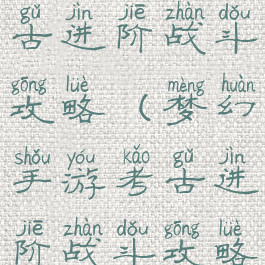 gǔ jìn jiē zhàn dǒu
古进阶战斗
gōng lüè mèng huàn
攻略(梦幻
shǒu yóu kǎo gǔ jìn
手游考古进
jiē zhàn dǒu gōng lüè
阶战斗攻略